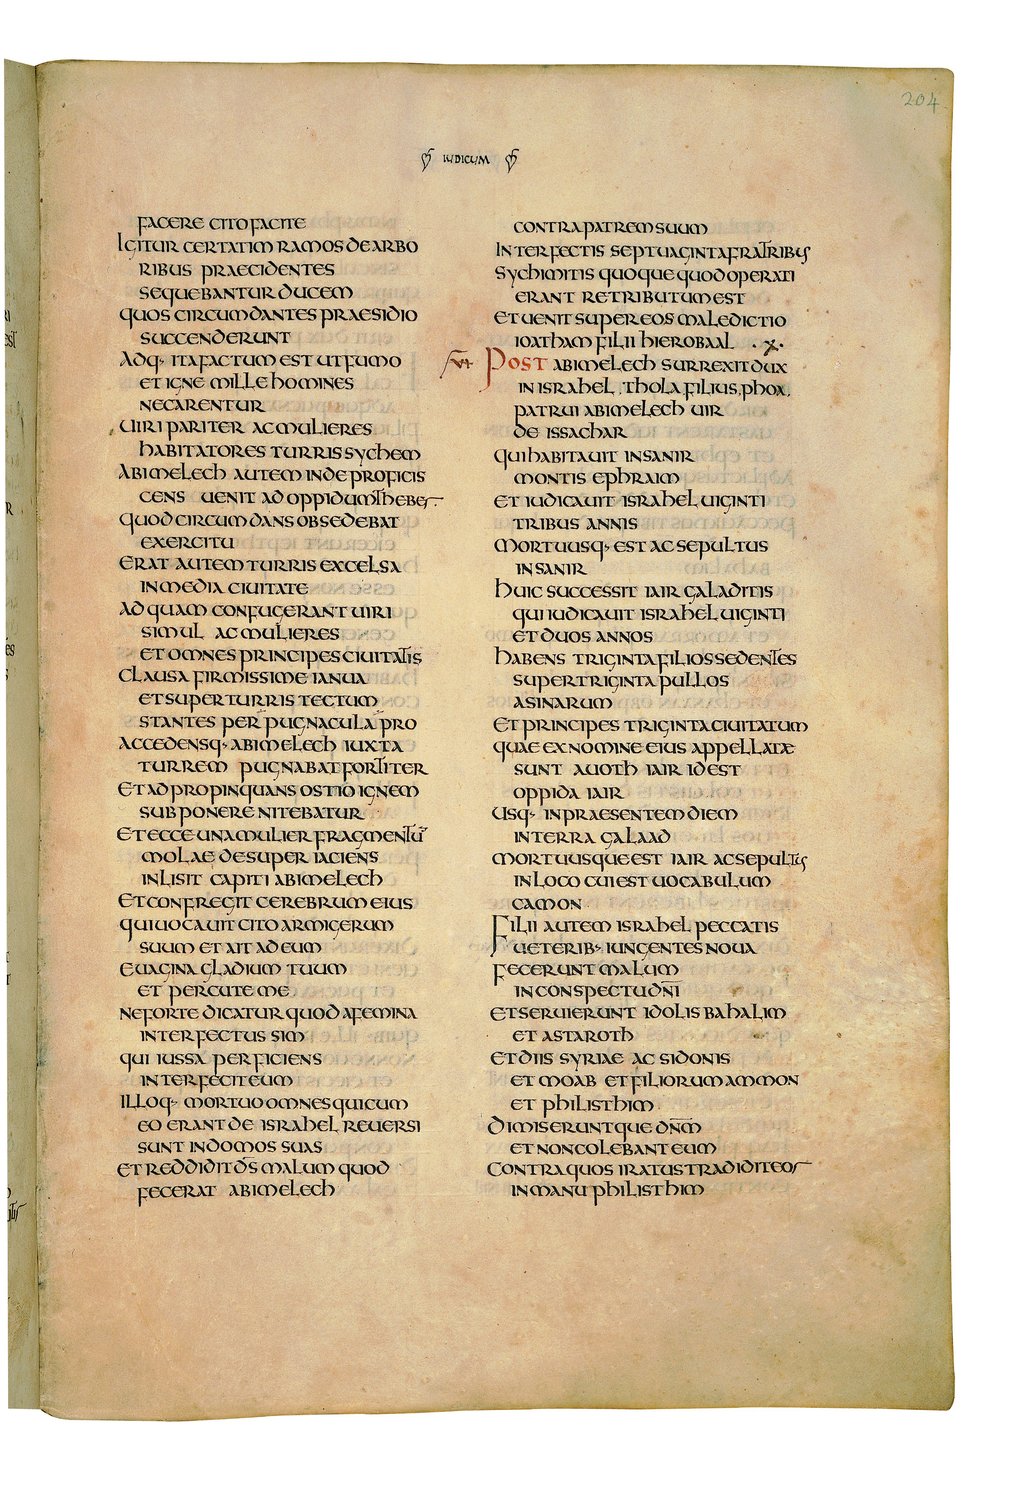 204
IUDICUM
FACERE CITO FACITE
IGITUR CERTATIM RAMOS DE ARBO
RIBUS PRAECIDENTES
SEQUEBANTUR DUCEM
QUOS CIRCUMDANTES PRAESIDIO
SUCCENDERUNT
ADQ· ITA FACTUM EST UT FUMO
ET IGNE MILLE HOMINES
NECARENTUR
UIRI PARITER AC MULIERES
HABITATORES TURRIS SYCHEM
ABIMELECH AUTEM INDE PROFICIS
CENS UENIT AD OPPIDUM THEBES
QUOD CIRCUMDANS OBSEDEBAT
EXERCITU
ERAT AUTEM TURRIS EXCELSA
IN MEDIA CIUITATE
AD QUAM CONFUGERANT UIRI
SIMUL AC MULIERES
ET OMNES PRINCIPES CIUITATIS
CLAUSA FIRMISSIME IANUA
ET SUPER TURRIS TECTUM
STANTES PER PUGNACULA PRO
ACCEDENSQ· ABIMELECH IUXTA
TURREM PUGNABAT FORTITER
ET ADPROPINQUANS OSTIO IGNEM
SUBPONERE NITEBATUR
ET ECCE UNA MULIER FRAGMENTŪ
MOLAE DESUPER IACIENS
INLISIT CAPITI ABIMELECH
ET CONFREGIT CEREBRUM EIUS
QUI UOCAUIT CITO ARMIGERUM
SUUM ET AIT AD EUM
EUAGINA GLADIUM TUUM
ET PERCUTE ME
NE FORTE DICATUR QUOD A FEMINA
INTERFECTUS SIM
QUI IUSSA PERFICIENS
INTERFECIT EUM
ILLOQ· MORTUO OMNES QUI CUM
EO ERANT DE ISRAHEL REUERSI
SUNT IN DOMOS SUAS
ET REDDIDIT D̄S MALUM QUOD
FECERAT ABIMELECH
CONTRA PATREM SUUM
INTERFECTIS SEPTUAGINTA FRATRIBUS
SYCHIMITIS QUOQUE QUOD OPERATI
ERANT RETRIBUTUM EST
ET UENIT SUPER EOS MALEDICTIO
IOATHAM FILII HIEROBAAL · X ·
POST ABIMELECH SURREXIT DUX
IN ISRAHEL . THOLA . FILIUS . PHOA .
PATRUI ABIMELECH UIR
DE ISSACHAR
QUI HABITAUIT IN SANIR
MONTIS EPHRAIM
ET IUDICAUIT ISRAHEL UIGINTI
TRIBUS ANNIS
MORTUUSQ· EST AC SEPULTUS
IN SANIR
HUIC SUCCESSIT IAIR GALADITIS
QUI IUDICAUIT ISRAHEL UIGINTI
ET DUOS ANNOS
HABENS TRIGINTA FILIOS SEDENTES
SUPER TRIGINTA PULLOS
ASINARUM
ET PRINCIPES TRIGINTA CIUITATUM
QUAE EX NOMINE EIUS APPELLATAE
SUNT AUOTH IAIR ID EST
OPPIDA IAIR
USQ· IN PRAESENTEM DIEM
IN TERRA GALAAD
MORTUUSQUE EST IAIR AC SEPULTUS
IN LOCO CUI EST UOCABULUM
CAMON
FILII AUTEM ISRAHEL PECCATIS
UETERIB· IUNGENTES NOUA
FECERUNT MALUM
IN CONSPECTU DN̄I
ET SERUIERUNT IDOLIS BAHALIM
ET ASTAROTH
ET DIIS SYRIAE AC SIDONIS
ET MOAB ET FILIORUM AMMON
ET PHILISTHIM
DIMISERUNTQUE DN̄M
ET NON COLEBANT EUM
CONTRA QUOS IRATUS TRADIDIT EOS
IN MANU PHILISTHIM